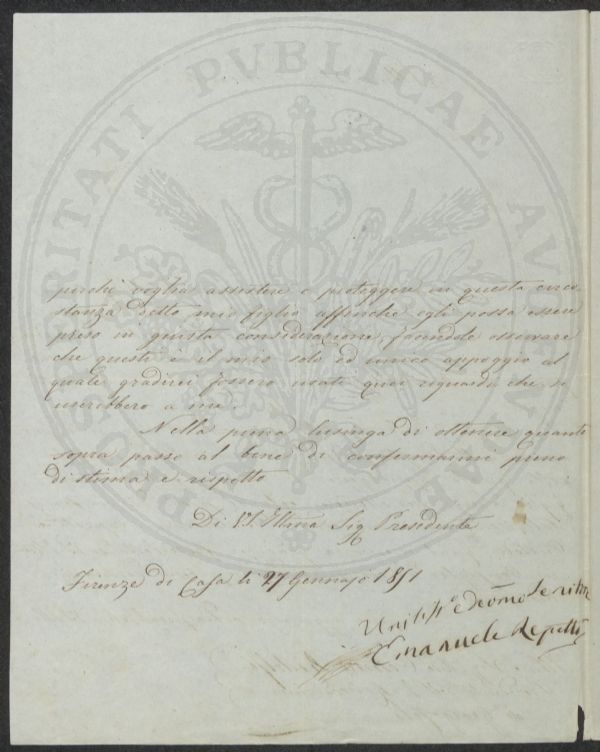 PROSPERITATI PVBLICAE AVGENDAE
perchè voglia assistere e proteggere in questa circo
stanza detto mio figlio affinchè egli possa essere
preso in giusta considerazione, facendole osservare
che questi è il mio solo ed unico appoggio al
quale gradirei fossero usati quei riguardi che si
userebbero a me.
Nella piena lusinga di ottenere quanto
sopra passo al bene di confermarmi pieno
di stima e rispetto
Di V.S. Illma Sig Presidente
Firenze di Casa li 27 Gennajo 1851
Umilis.o e devmo Servitore
Emanuele Repetti